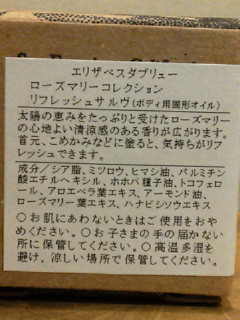 エリザベスダブリュー
ローズマリーコレクション
リフレッシュサルヴ(ボディ用固形オイル)
太陽の恵みをたっぷりと受けたローズマリー
の心地よい清涼感のある香りが広がります。
首元、こめかみなどに塗ると、気持ちがリフ
レッシュできます。
成分/シア脂、ミツロウ、ヒマシ油、パルミチン
酸エチルヘキシル、ホホバ種子油、トコフェロ
ール、アロエベラ葉エキス、アーモンド油、
ローズマリー葉エキス、ハナビシソウエキス
○お肌にあわないときはご使用をおや
めください。○お子さまの手の届かない
所に保管してください。○高温多湿を
避け、涼しい場所で保管してください。